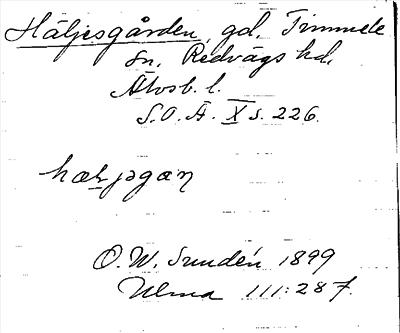 Häljesgården, gd, Timmele
sn, Redvägs hd,
Älvsb. l.
S.O.Ä. X s. 226.
O. W. Sundén 1899
Ulma 111:287.